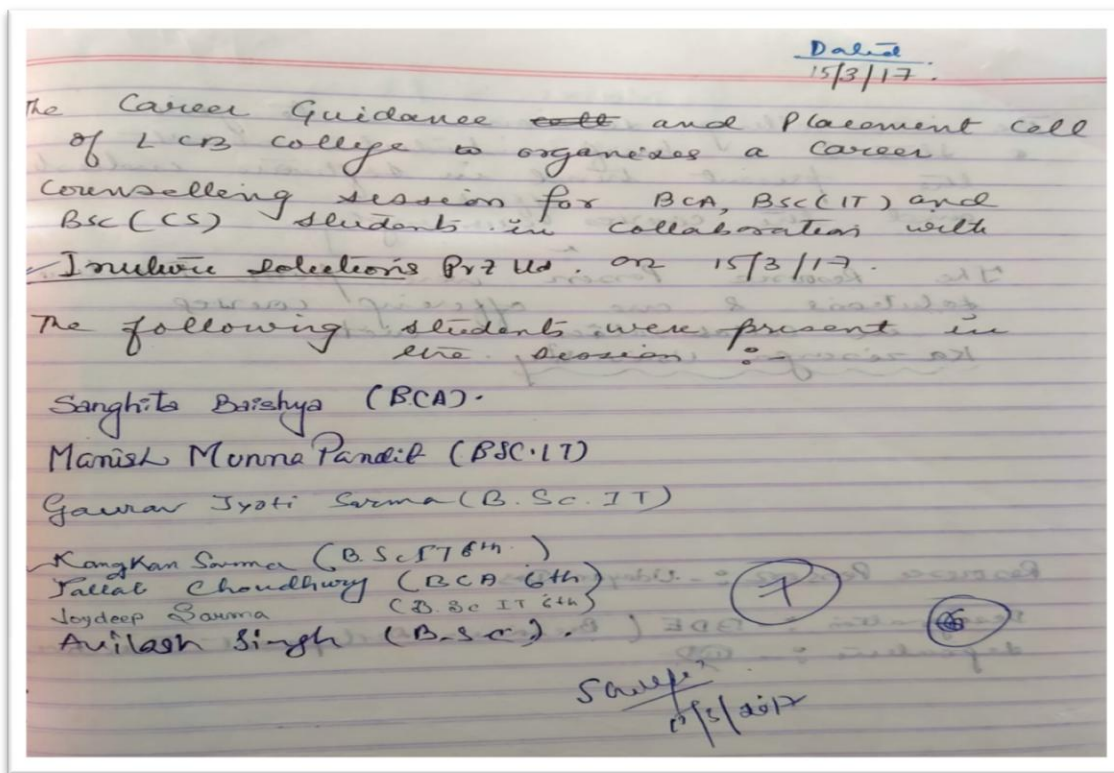 Dated
15/3/17.
The Career Guidance and Placement Cell
of LCB College organizes a Career
Counselling session for BCA, BSC(IT) and
BSC(CS) students in collaboration with
solutions Pvt Ltd. on 15/3/17.
The following students were present in
the session :-
Sanghita Baishya (BCA).
Manish Munna Pandit (BSC.IT)
Gaurav Jyoti Sarma (B.Sc.IT)
Kangkan Sarma (B.Sc IT 6th.)
Choudhury (BCA 6th)
Joydeep Sarma (B.Sc IT 6th)
Avilash Singh (B.Sc).
7